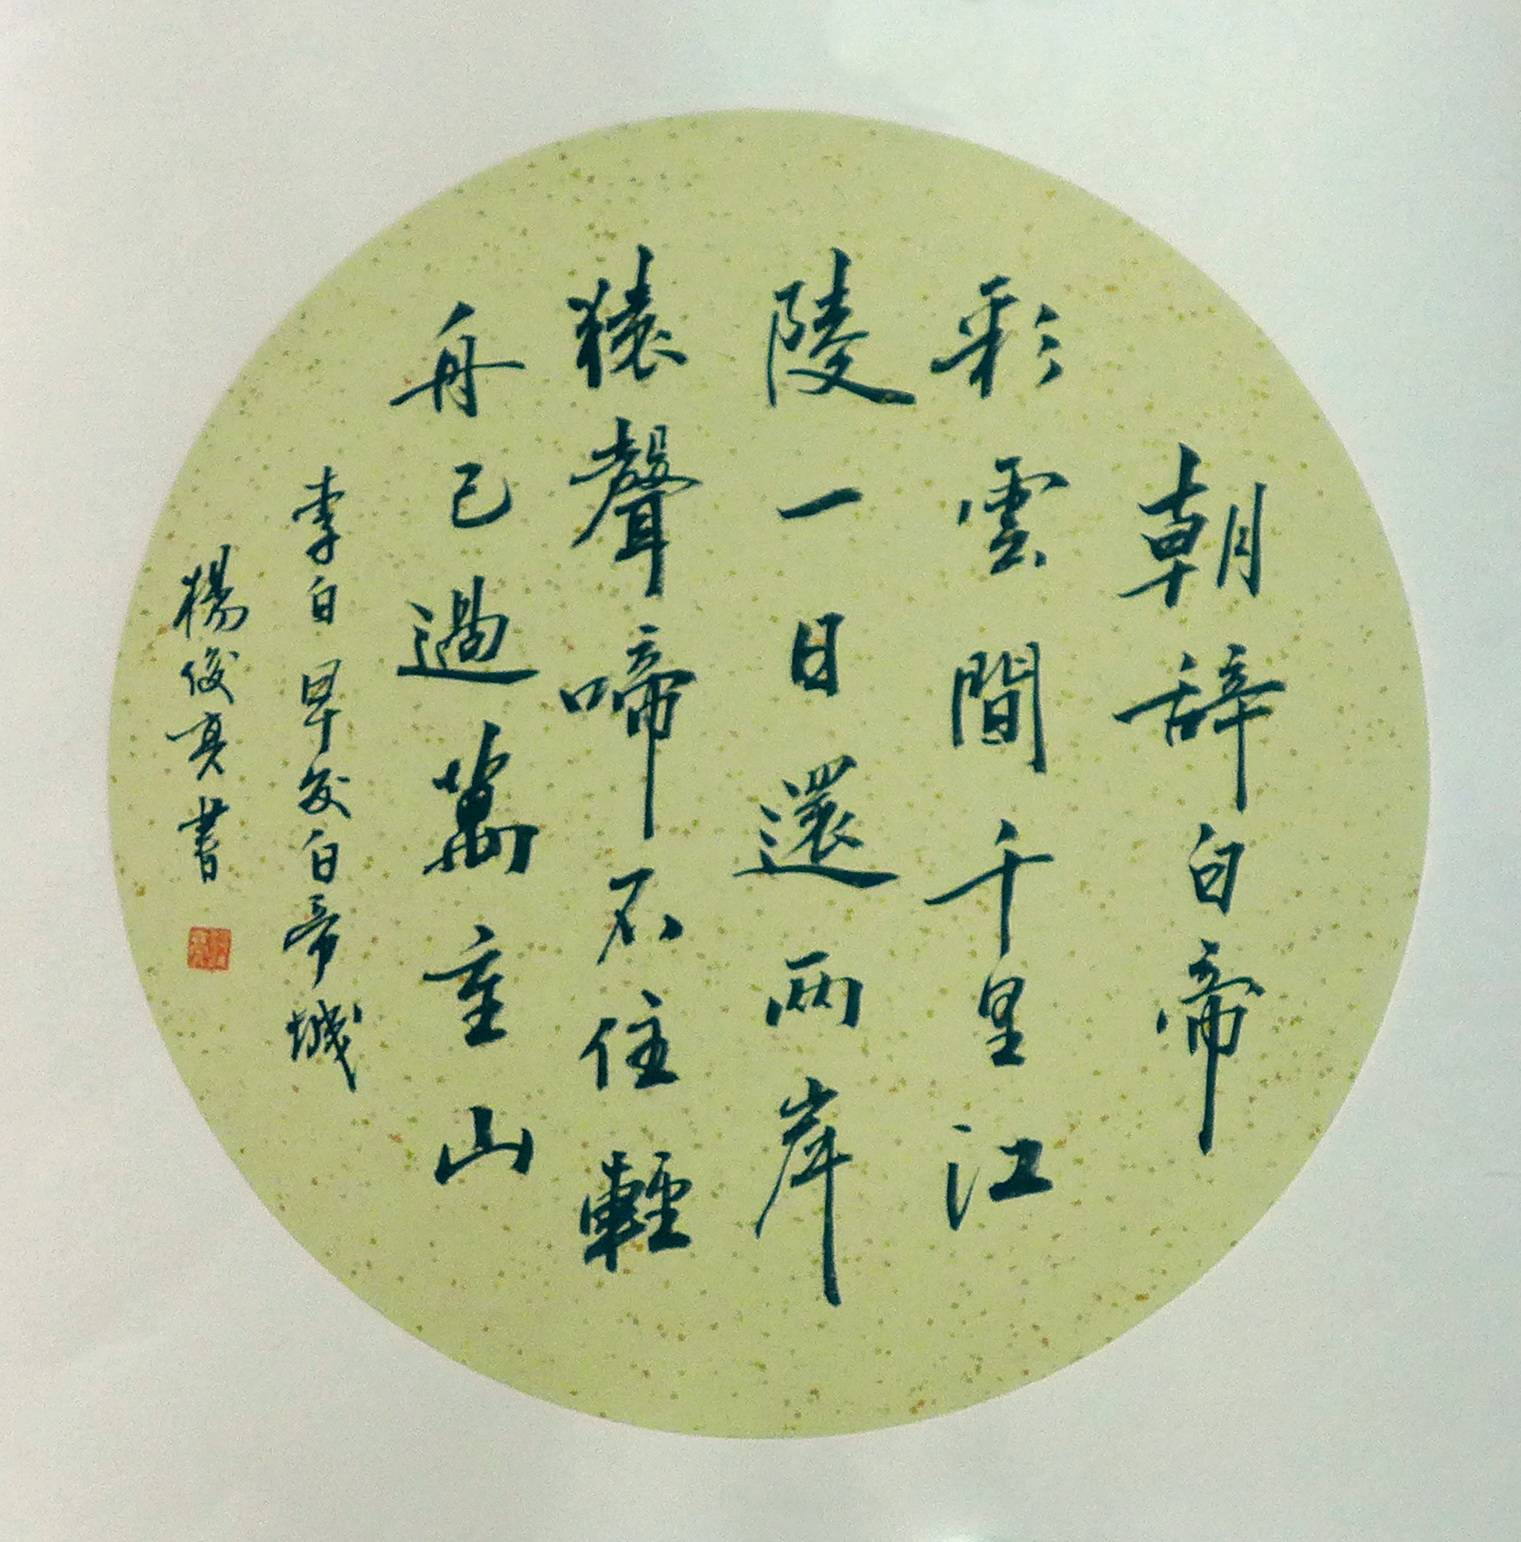 朝辞白帝
彩雲間千里江
陵一日還兩岸
猿聲啼不住輕
舟已過萬重山
李白早发白帝城
楊俊亮書